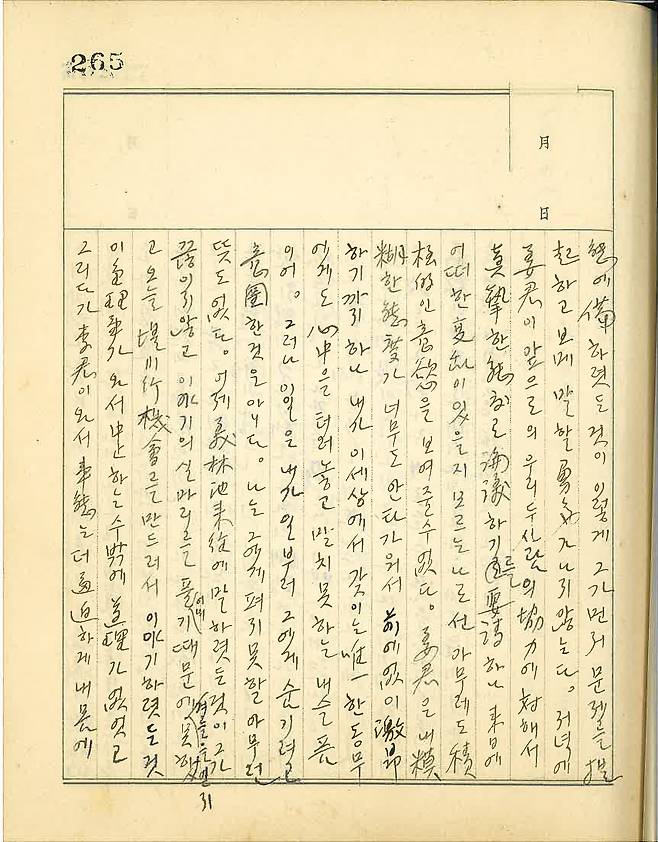 265
月
日
에 備하렷든 것이 이렇게 그가 먼저 문제를 提
하고 보메 말할 勇氣가 나지 않는다. 저녁에
姜君이 앞으로의 우리 두 사람의 協力에 対해서
真摯한 態度로 論議하기를 要請하나 来日에
어떠한 変動이 있을지 모르는 나로선 아무래도 積
極的인 意慾을 보여 줄 수 없다. 姜君은 내 模
糊한 態度가 너무도 안타가워서 前에 없이 激昂
하기까지 하나 내가 이 세상에서 갖이는 唯一한 동무
에게도 心中을 터러놓고 말치 못하는 내 슬픔
이어. 그러나 이 일은 내가 일부러 그에게 숨기려고
意圖한 것은 아니다. 나는 그에게 펴지 못할 아무런
뜻도 없다. 어제 義林池 来往에 말하렷든 것이 그가
끊이지 않고 이야기의 실마리를 풀기 때문에 못하
고 오늘 堤川行 機會를 만드러서 이야기하렷든 것
이 金理事가 와서 中止하는 수밖에 道理가 없었고
그러다가 李君이 와서 事態는 더 逼迫하게 내 몸에